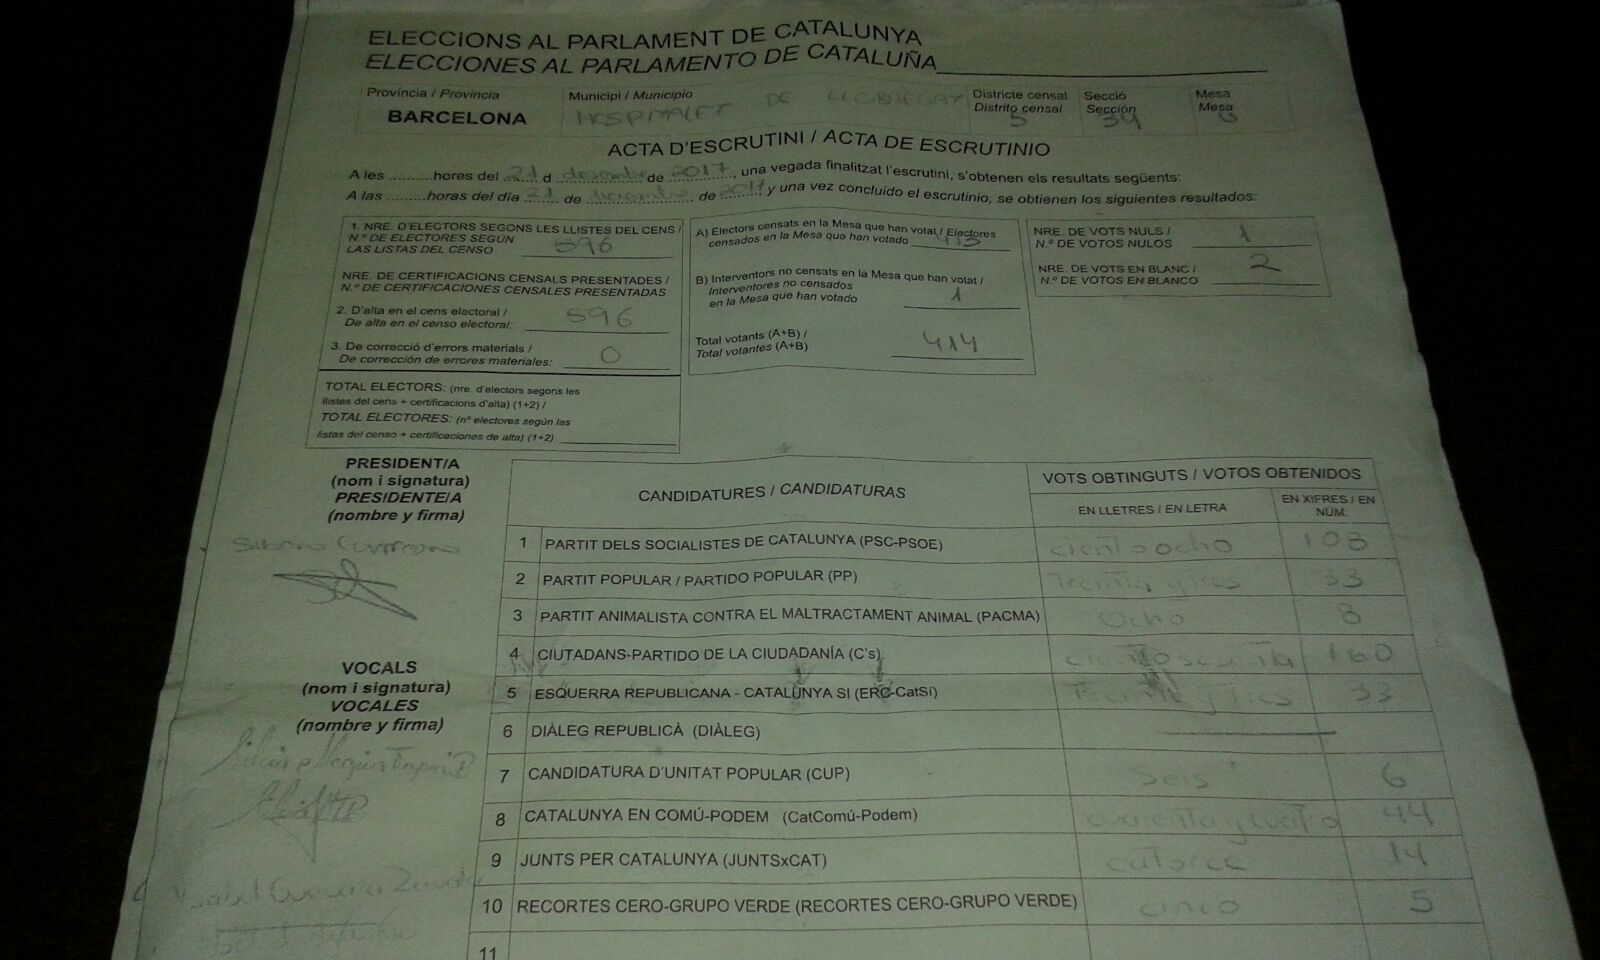 ELECCIONS AL PARLAMENT DE CATALUNYA
ELECCIONES AL PARLAMENTO DE CATALUÑA
Província / Provincia
BARCELONA
Municipi / Municipio
HOSPITALET DE LLOBREGAT
Districte censal
Distrito censal
5
Secció
Sección
34
Mesa
Mesa
ACTA D'ESCRUTINI / ACTA DE ESCRUTINIO
A les ......... hores del 21 d desembre de 2017, una vegada finalitzat l'escrutini, s'obtenen els resultats següents:
A las ......... horas del día 21 de diciembre de 2017 y una vez concluido el escrutinio, se obtienen los siguientes resultados:
1. NRE. D'ELECTORS SEGONS LES LLISTES DEL CENS /
N.º DE ELECTORES SEGÚN
LAS LISTAS DEL CENSO 596
NRE. DE CERTIFICACIONS CENSALS PRESENTADES /
N.º DE CERTIFICACIONES CENSALES PRESENTADAS
2. D'alta en el cens electoral /
De alta en el censo electoral: 596
3. De correcció d'errors materials /
De corrección de errores materiales: 0
TOTAL ELECTORS: (nre. d'electors segons les
llistes del cens + certificacions d'alta) (1+2) /
TOTAL ELECTORES: (nº electores según las
listas del censo + certificaciones de alta) (1+2)
A) Electors censats en la Mesa que han votat / Electores
censados en la Mesa que han votado 413
B) Interventors no censats en la Mesa que han votat /
Interventores no censados
en la Mesa que han votado 1
Total votants (A+B) /
Total votantes (A+B) 414
NRE. DE VOTS NULS /
N.º DE VOTOS NULOS 1
NRE. DE VOTS EN BLANC /
N.º DE VOTOS EN BLANCO 2
PRESIDENT/A
(nom i signatura)
PRESIDENTE/A
(nombre y firma)
VOCALS
(nom i signatura)
VOCALES
(nombre y firma)
CANDIDATURES / CANDIDATURAS
VOTS OBTINGUTS / VOTOS OBTENIDOS
EN LLETRES / EN LETRA
EN XIFRES / EN
NÚM.
1 PARTIT DELS SOCIALISTES DE CATALUNYA (PSC-PSOE) ciento ocho 108
2 PARTIT POPULAR / PARTIDO POPULAR (PP) treinta y tres 33
3 PARTIT ANIMALISTA CONTRA EL MALTRACTAMENT ANIMAL (PACMA) ocho 8
4 CIUTADANS-PARTIDO DE LA CIUDADANÍA (C's) ciento sesenta 160
5 ESQUERRA REPUBLICANA - CATALUNYA SI (ERC-CatSí) treinta y tres 33
6 DIÀLEG REPUBLICÀ (DIÀLEG)
7 CANDIDATURA D'UNITAT POPULAR (CUP) seis 6
8 CATALUNYA EN COMÚ-PODEM (CatComú-Podem) cuarenta y cuatro 44
9 JUNTS PER CATALUNYA (JUNTSxCAT) catorce 14
10 RECORTES CERO-GRUPO VERDE (RECORTES CERO-GRUPO VERDE) cinco 5
11